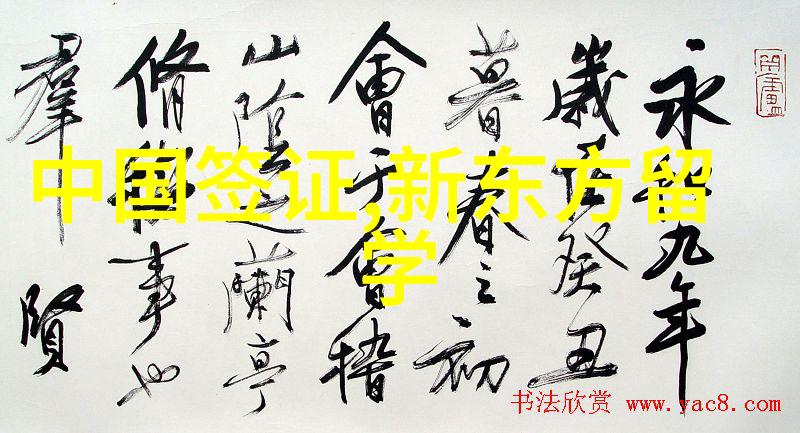 永和九年
歲在癸丑
暮春之初
會于會稽
山陰之蘭亭
脩禊事也
羣賢
中国签证,新东方留
学
书法欣赏 www.yac8.com